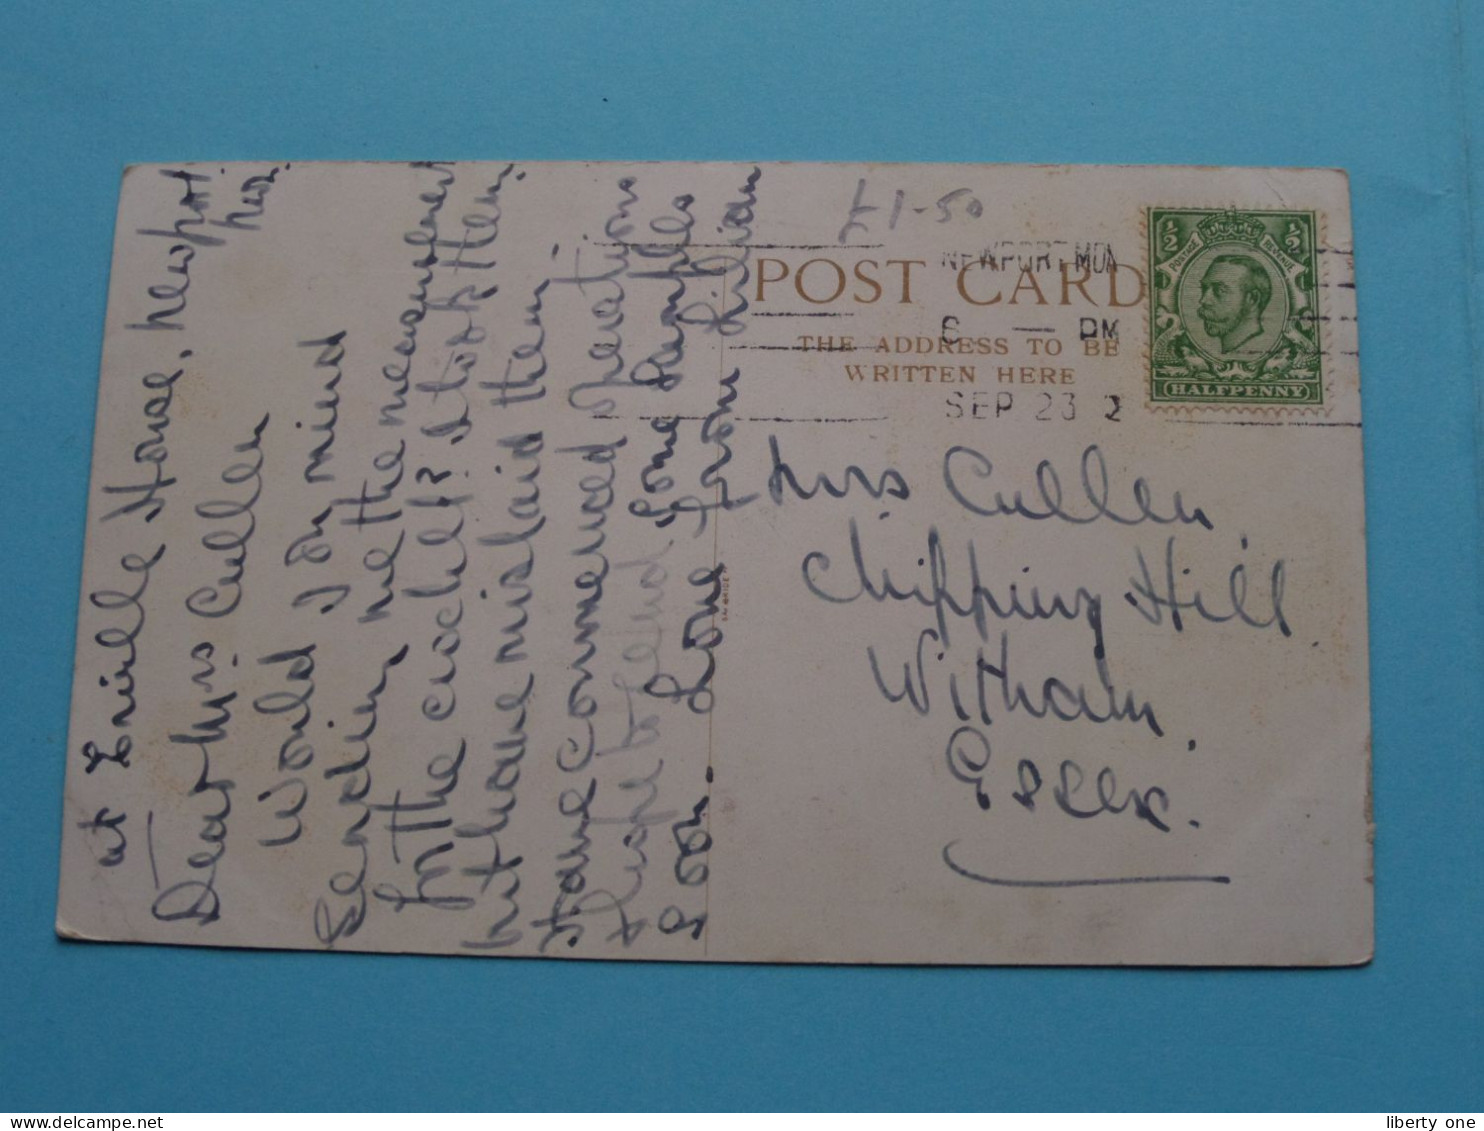 at Enville House, Newport
Mon.
Dear Mrs Cullen
Would you mind
sending me the measurement
for the crochet? I took them
but have mislaid them
Have commenced operations
& hope to send some samples
soon. Love from Lilian
£1-50
NEWPORT MON
6 — PM
SEP 23 2
POST CARD
THE ADDRESS TO BE
WRITTEN HERE
½ ½
POSTAGE REVENUE
HALFPENNY
Mrs Cullen
Chipping Hill
Witham
Essex.
liberty one